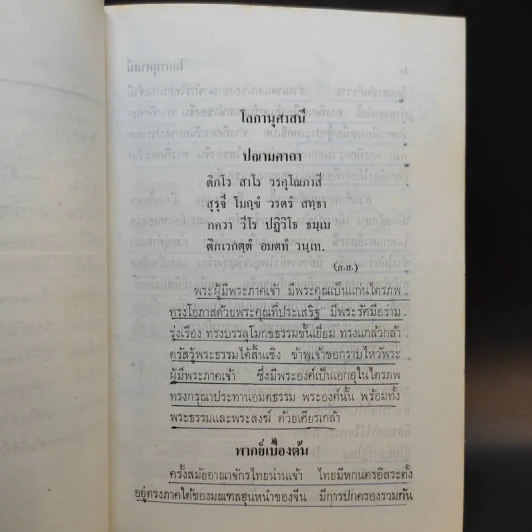 โลกานุศาสนี
ปณามคาถา
ติภโว สาโร วรคุโณภาสี
สุรุจี โมกฺขํ วรตรํ สทฺธา
ภควา วีโร ปฏิวิโธ ธมฺเม
ติภเวกตฺตํ อมตทํ วนฺเท.
(ก.ส.)
พระผู้มีพระภาคเจ้า มีพระคุณเป็นแก่นไตรภพ
ทรงโอภาสด้วยพระคุณที่ประเสริฐ มีพระรัศมีอร่าม
รุ่งเรือง ทรงบรรลุโมกขธรรมชั้นเยี่ยม ทรงแกล้วกล้า
ตรัสรู้พระธรรมได้สิ้นเชิง ข้าพเจ้าขอกราบไหว้พระ
ผู้มีพระภาคเจ้า ซึ่งมีพระองค์เป็นเอกอุในไตรภพ
ทรงกรุณาประทานอมตธรรม พระองค์นั้น พร้อมทั้ง
พระธรรมและพระสงฆ์ ด้วยเศียรเกล้า
พากย์เบื้องต้น
ครั้งสมัยอาณาจักรไทยน่านเจ้า ไทยมีหกนครอิสระตั้ง
อยู่ทรงภาคใต้ของมณฑลฮุนหนำของจีน มีการปกครองรวมกัน